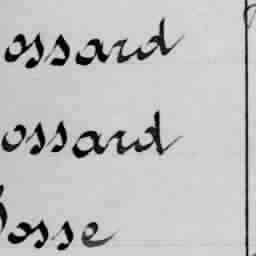 ossard
ossard
osse